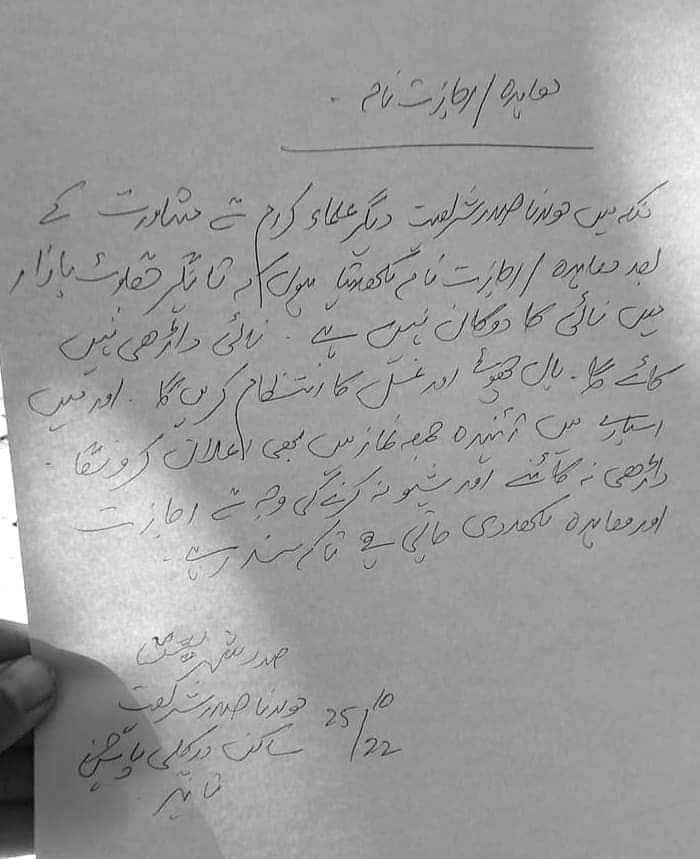 معاہدہ / اجازت نامہ
میں مولانا صدر شریعت دیگر علماء کرام سے مشاورت کے
بعد معاہدہ / اجازت نامہ لکھ دیتا ہوں کہ بازار
میں نائی کا دوکان نہیں ہے۔ نائی داڑھی نہیں
کاٹے گا۔ بال چھوٹے اور غسل کا انتظام کریں گا۔ اور میں
اسبارے میں آئیندہ جمعہ نماز میں بھی اعلان کرونگا۔
داڑھی نہ کاٹنے اور شیو نہ کرنے کی وجہ سے اجازت
اور معاہدہ لکھ دی جاتی ہے تاکہ سند رہے۔
صدر شہر
مولانا صدر شریعت
25/10/22
ساکن کلی